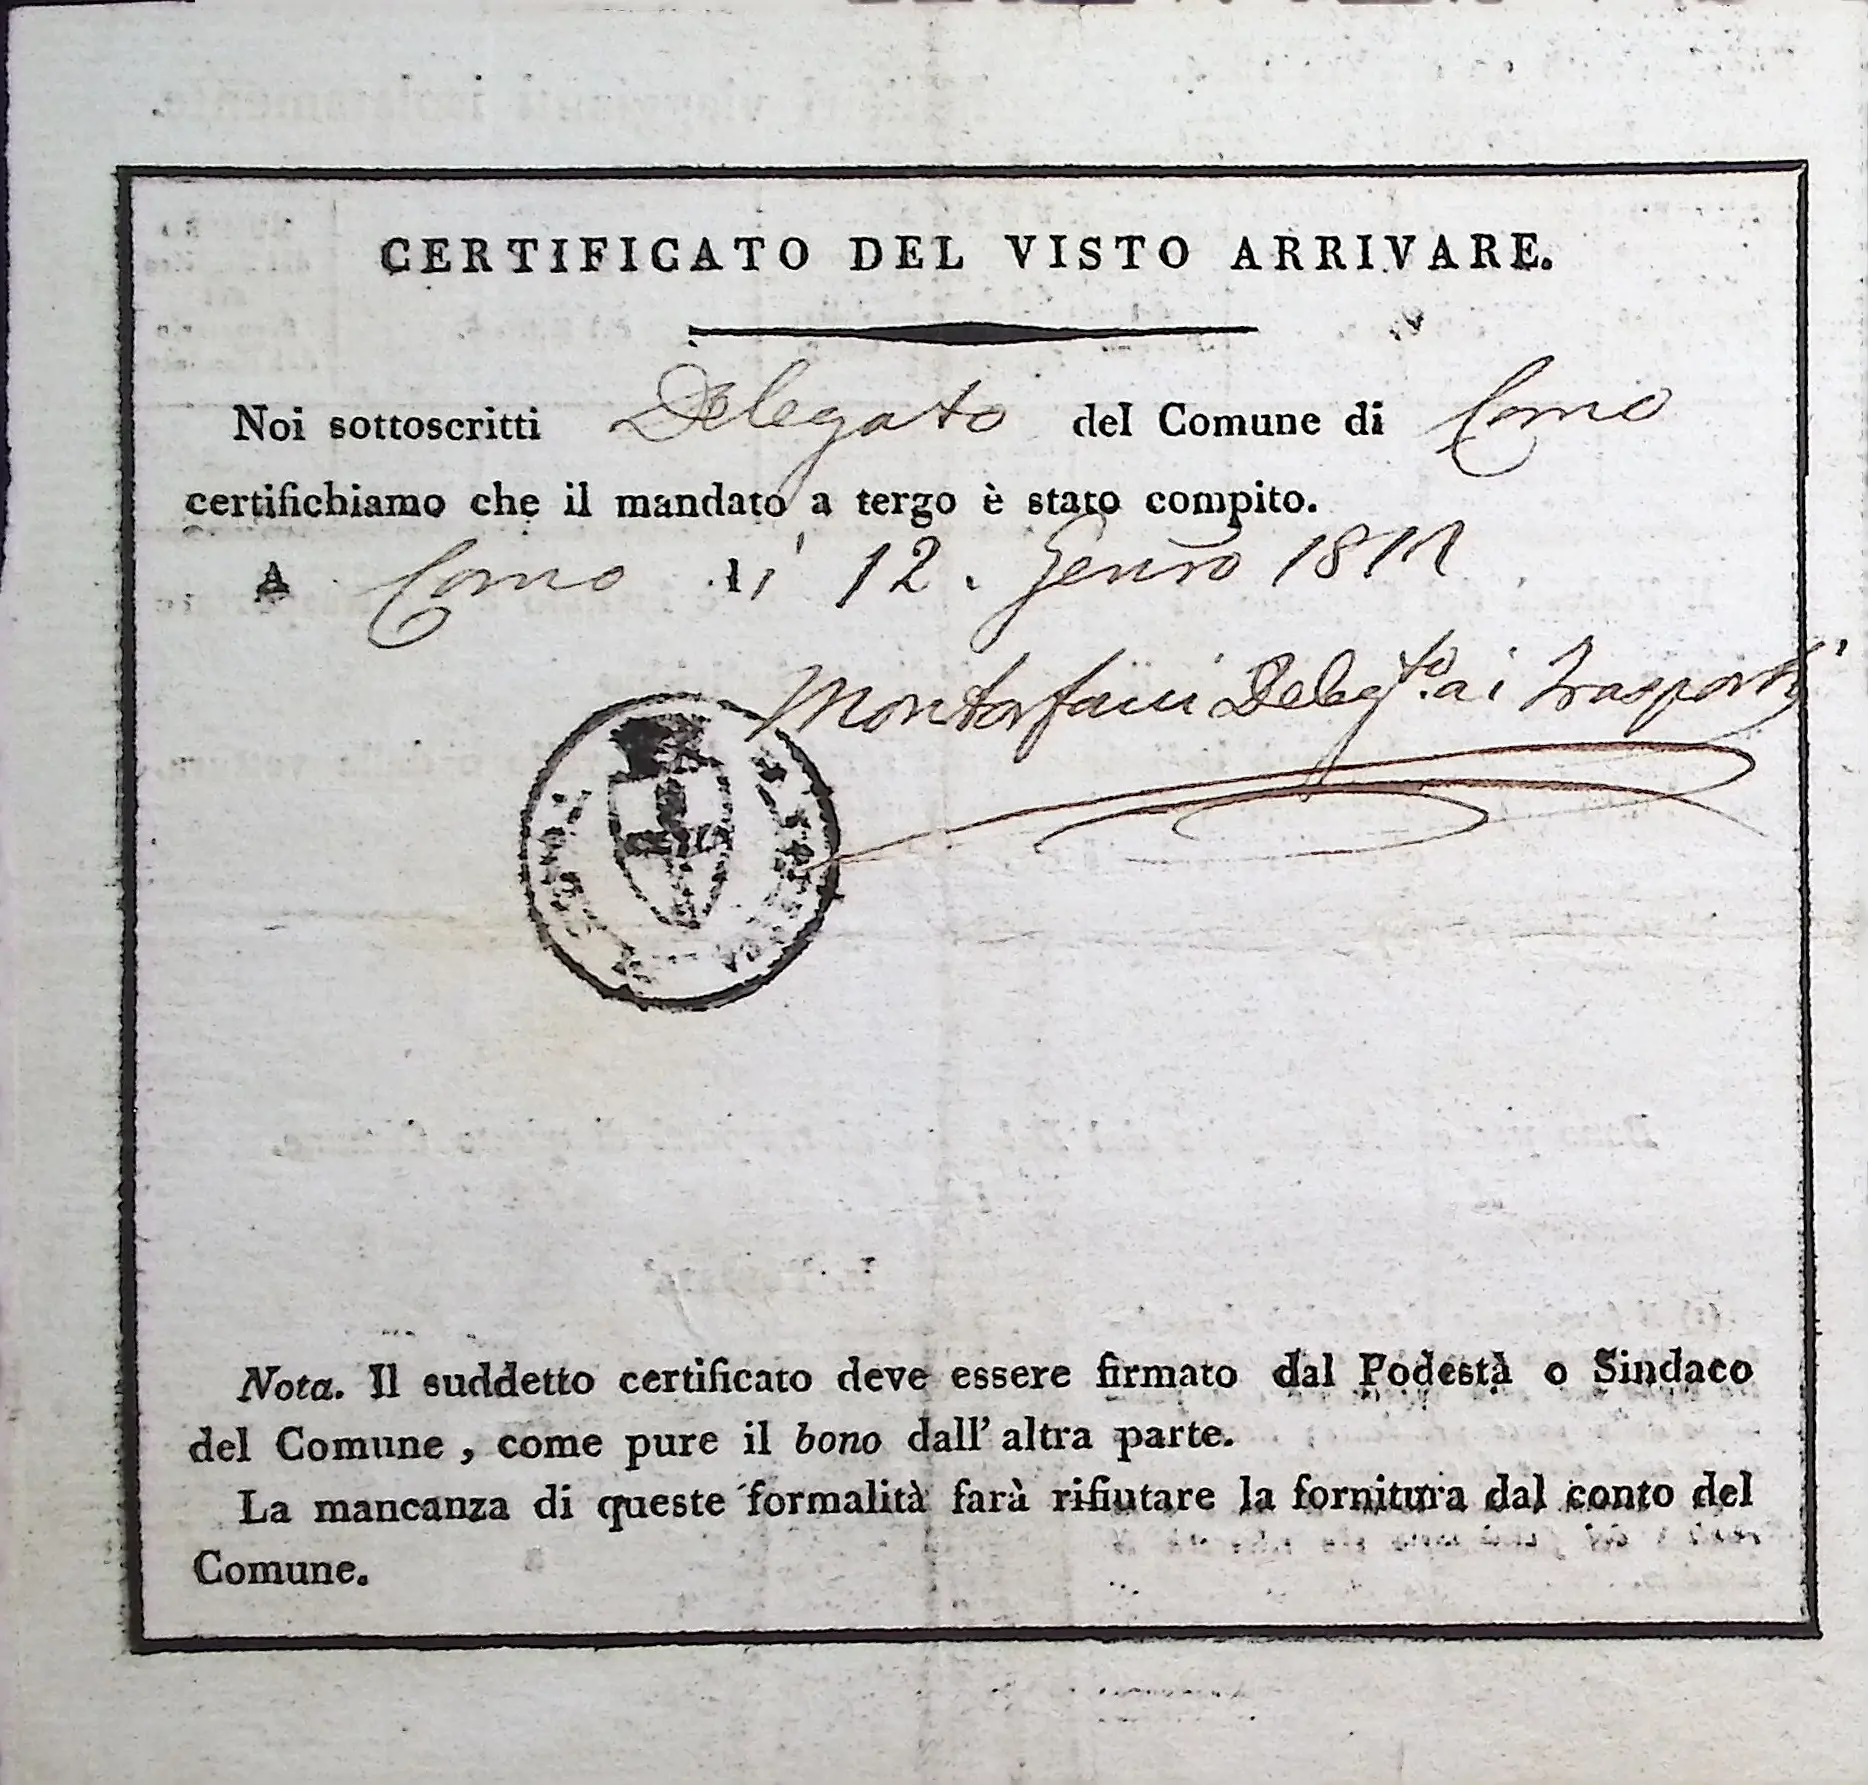 CERTIFICATO DEL VISTO ARRIVARE.
Noi sottoscritti Delegato del Comune di Como
certifichiamo che il mandato a tergo è stato compito.
A Como li 12. Genro 1811
Montorfani Delegto. ai Trasporti
Nota. Il suddetto certificato deve essere firmato dal Podestà o Sindaco
del Comune, come pure il bono dall'altra parte.
La mancanza di queste formalità farà rifiutare la fornitura dal conto del
Comune.